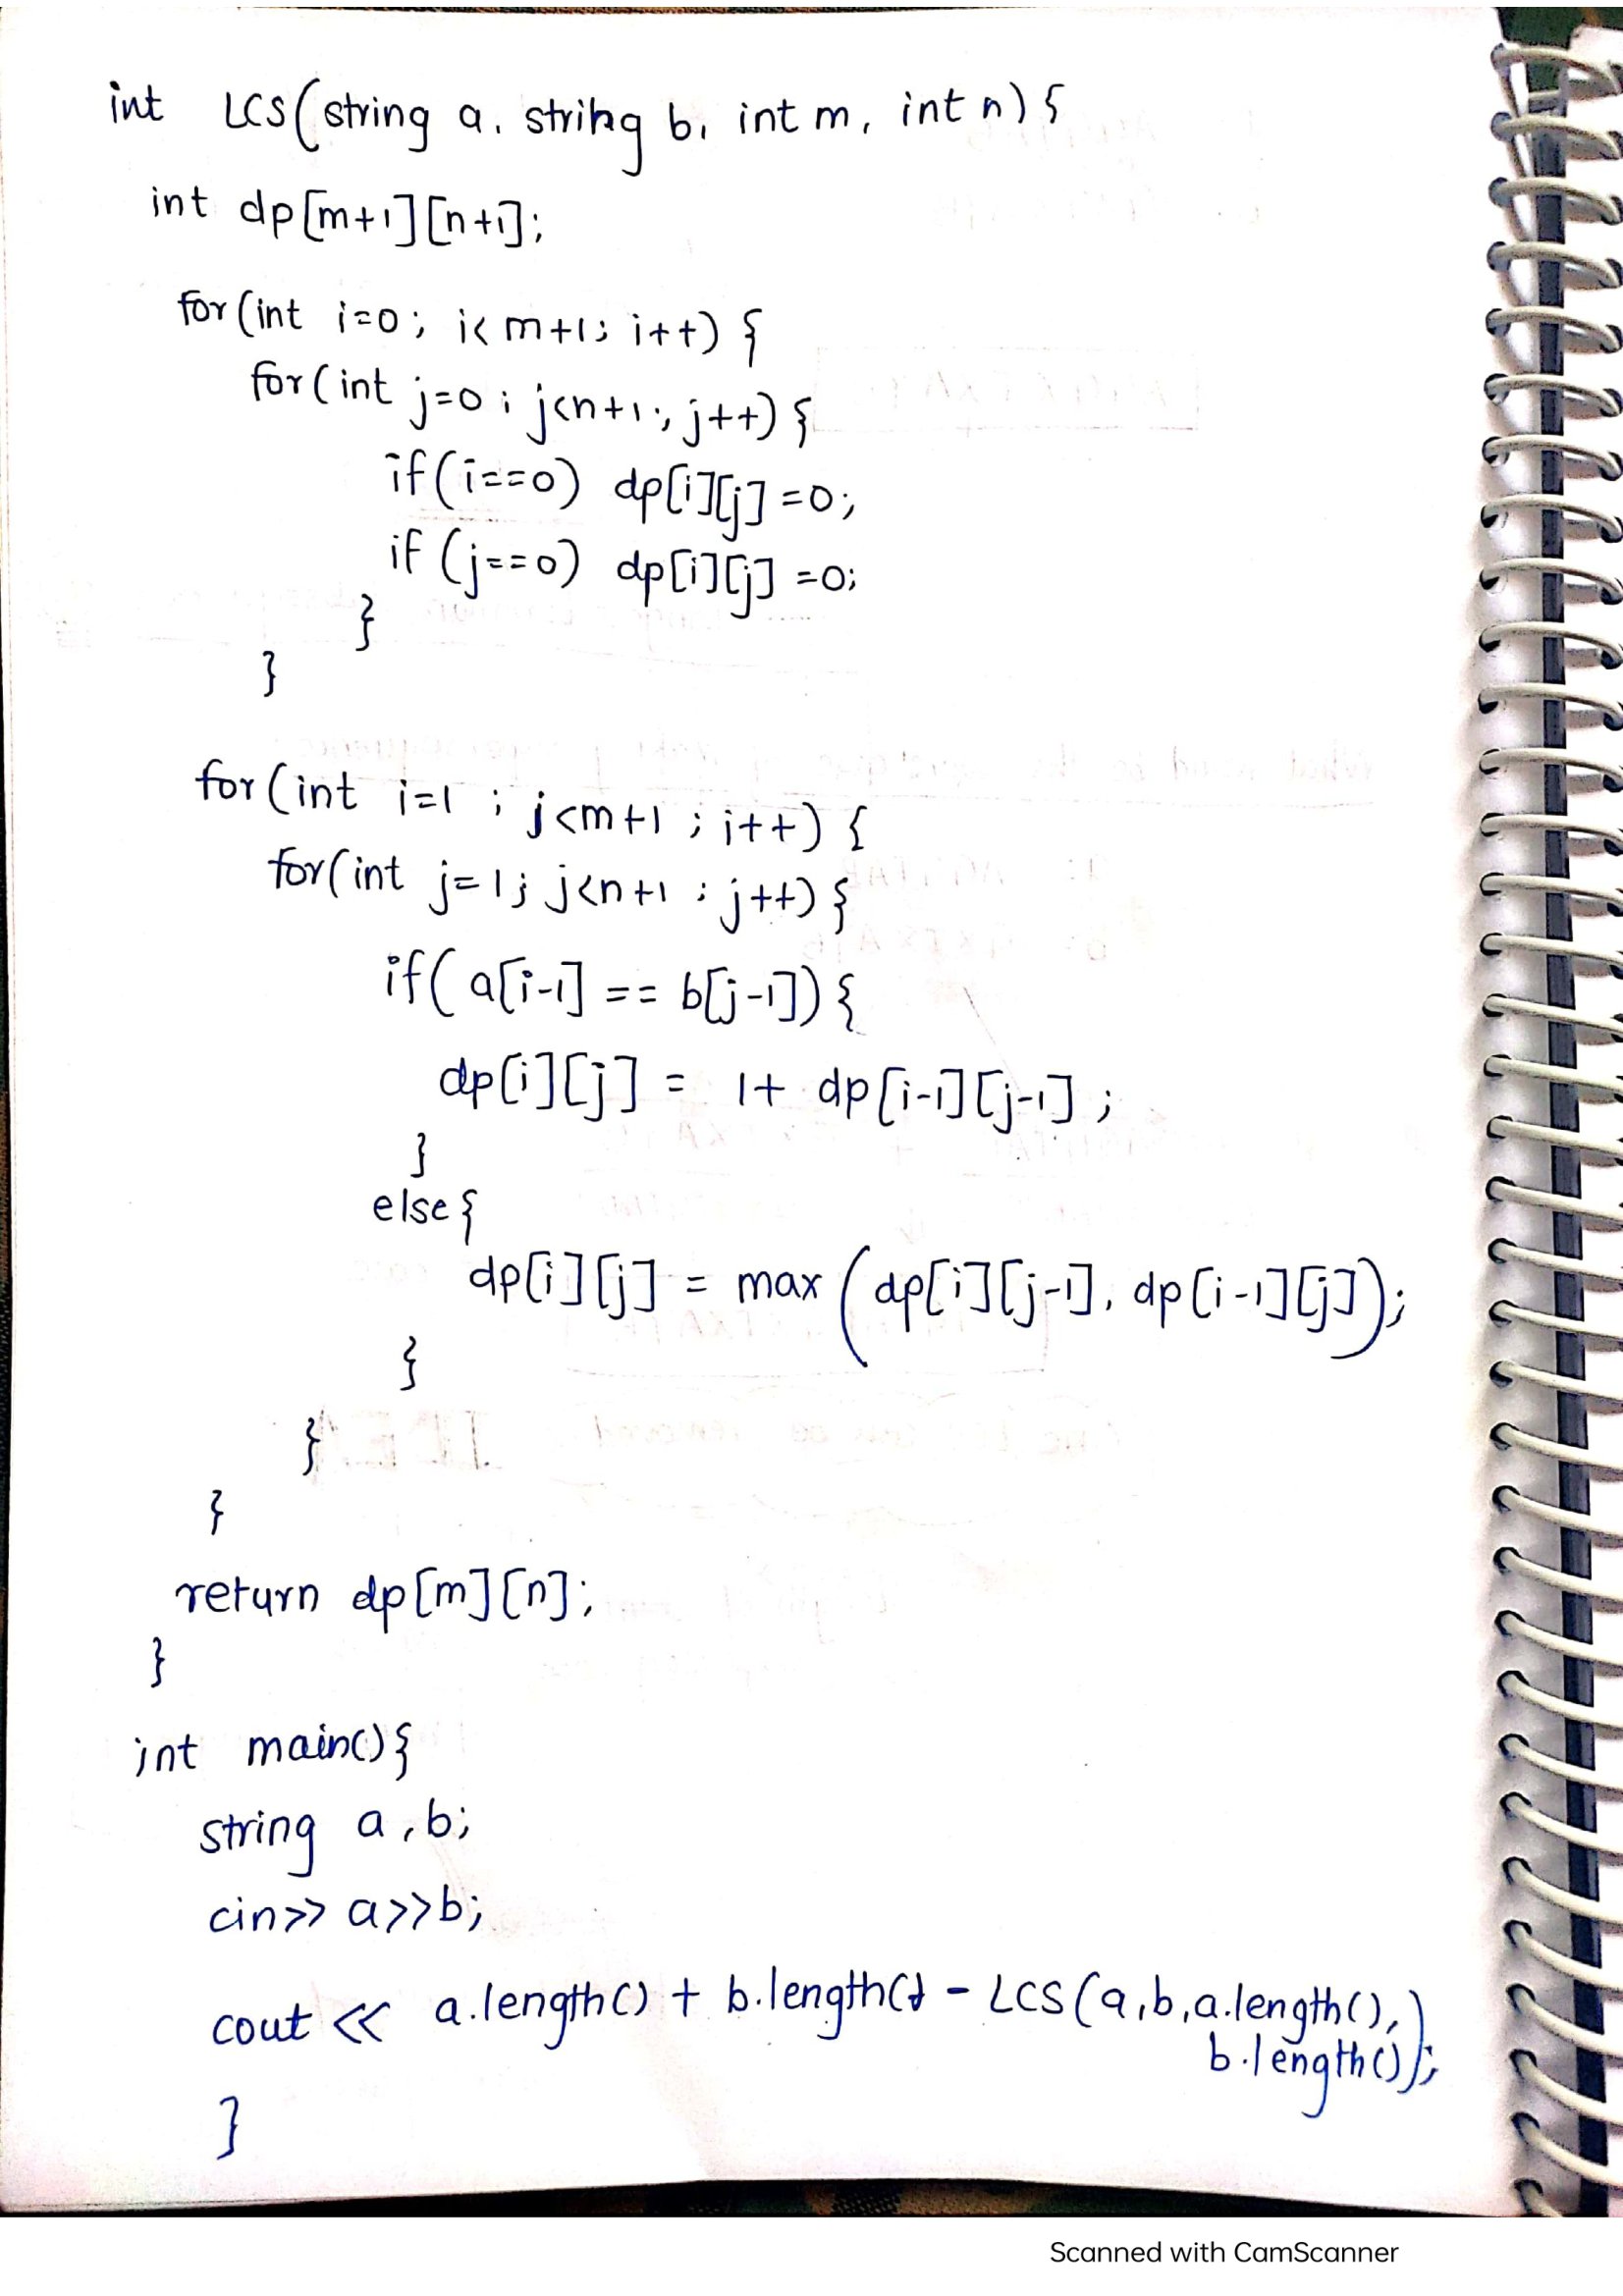 int LCS(string a, string b, int m, int n) {
int dp[m+1][n+1];
for(int i=0; i<m+1; i++) {
for(int j=0; j<n+1; j++) {
if(i==0) dp[i][j]=0;
if (j==0) dp[i][j]=0;
}
}
for(int i=1 ; j<m+1 ; i++) {
for(int j=1; j<n+1 ; j++) {
if( a[i-1] == b[j-1]) {
dp[i][j] = 1+ dp[i-1][j-1] ;
}
else {
dp[i][j] = max (dp[i][j-1], dp[i-1][j]);
}
}
}
return dp[m][n];
}
int main() {
string a, b;
cin>> a>>b;
cout << a.length() + b.length() - LCS(a,b,a.length(),
b.length());
}
Scanned with CamScanner